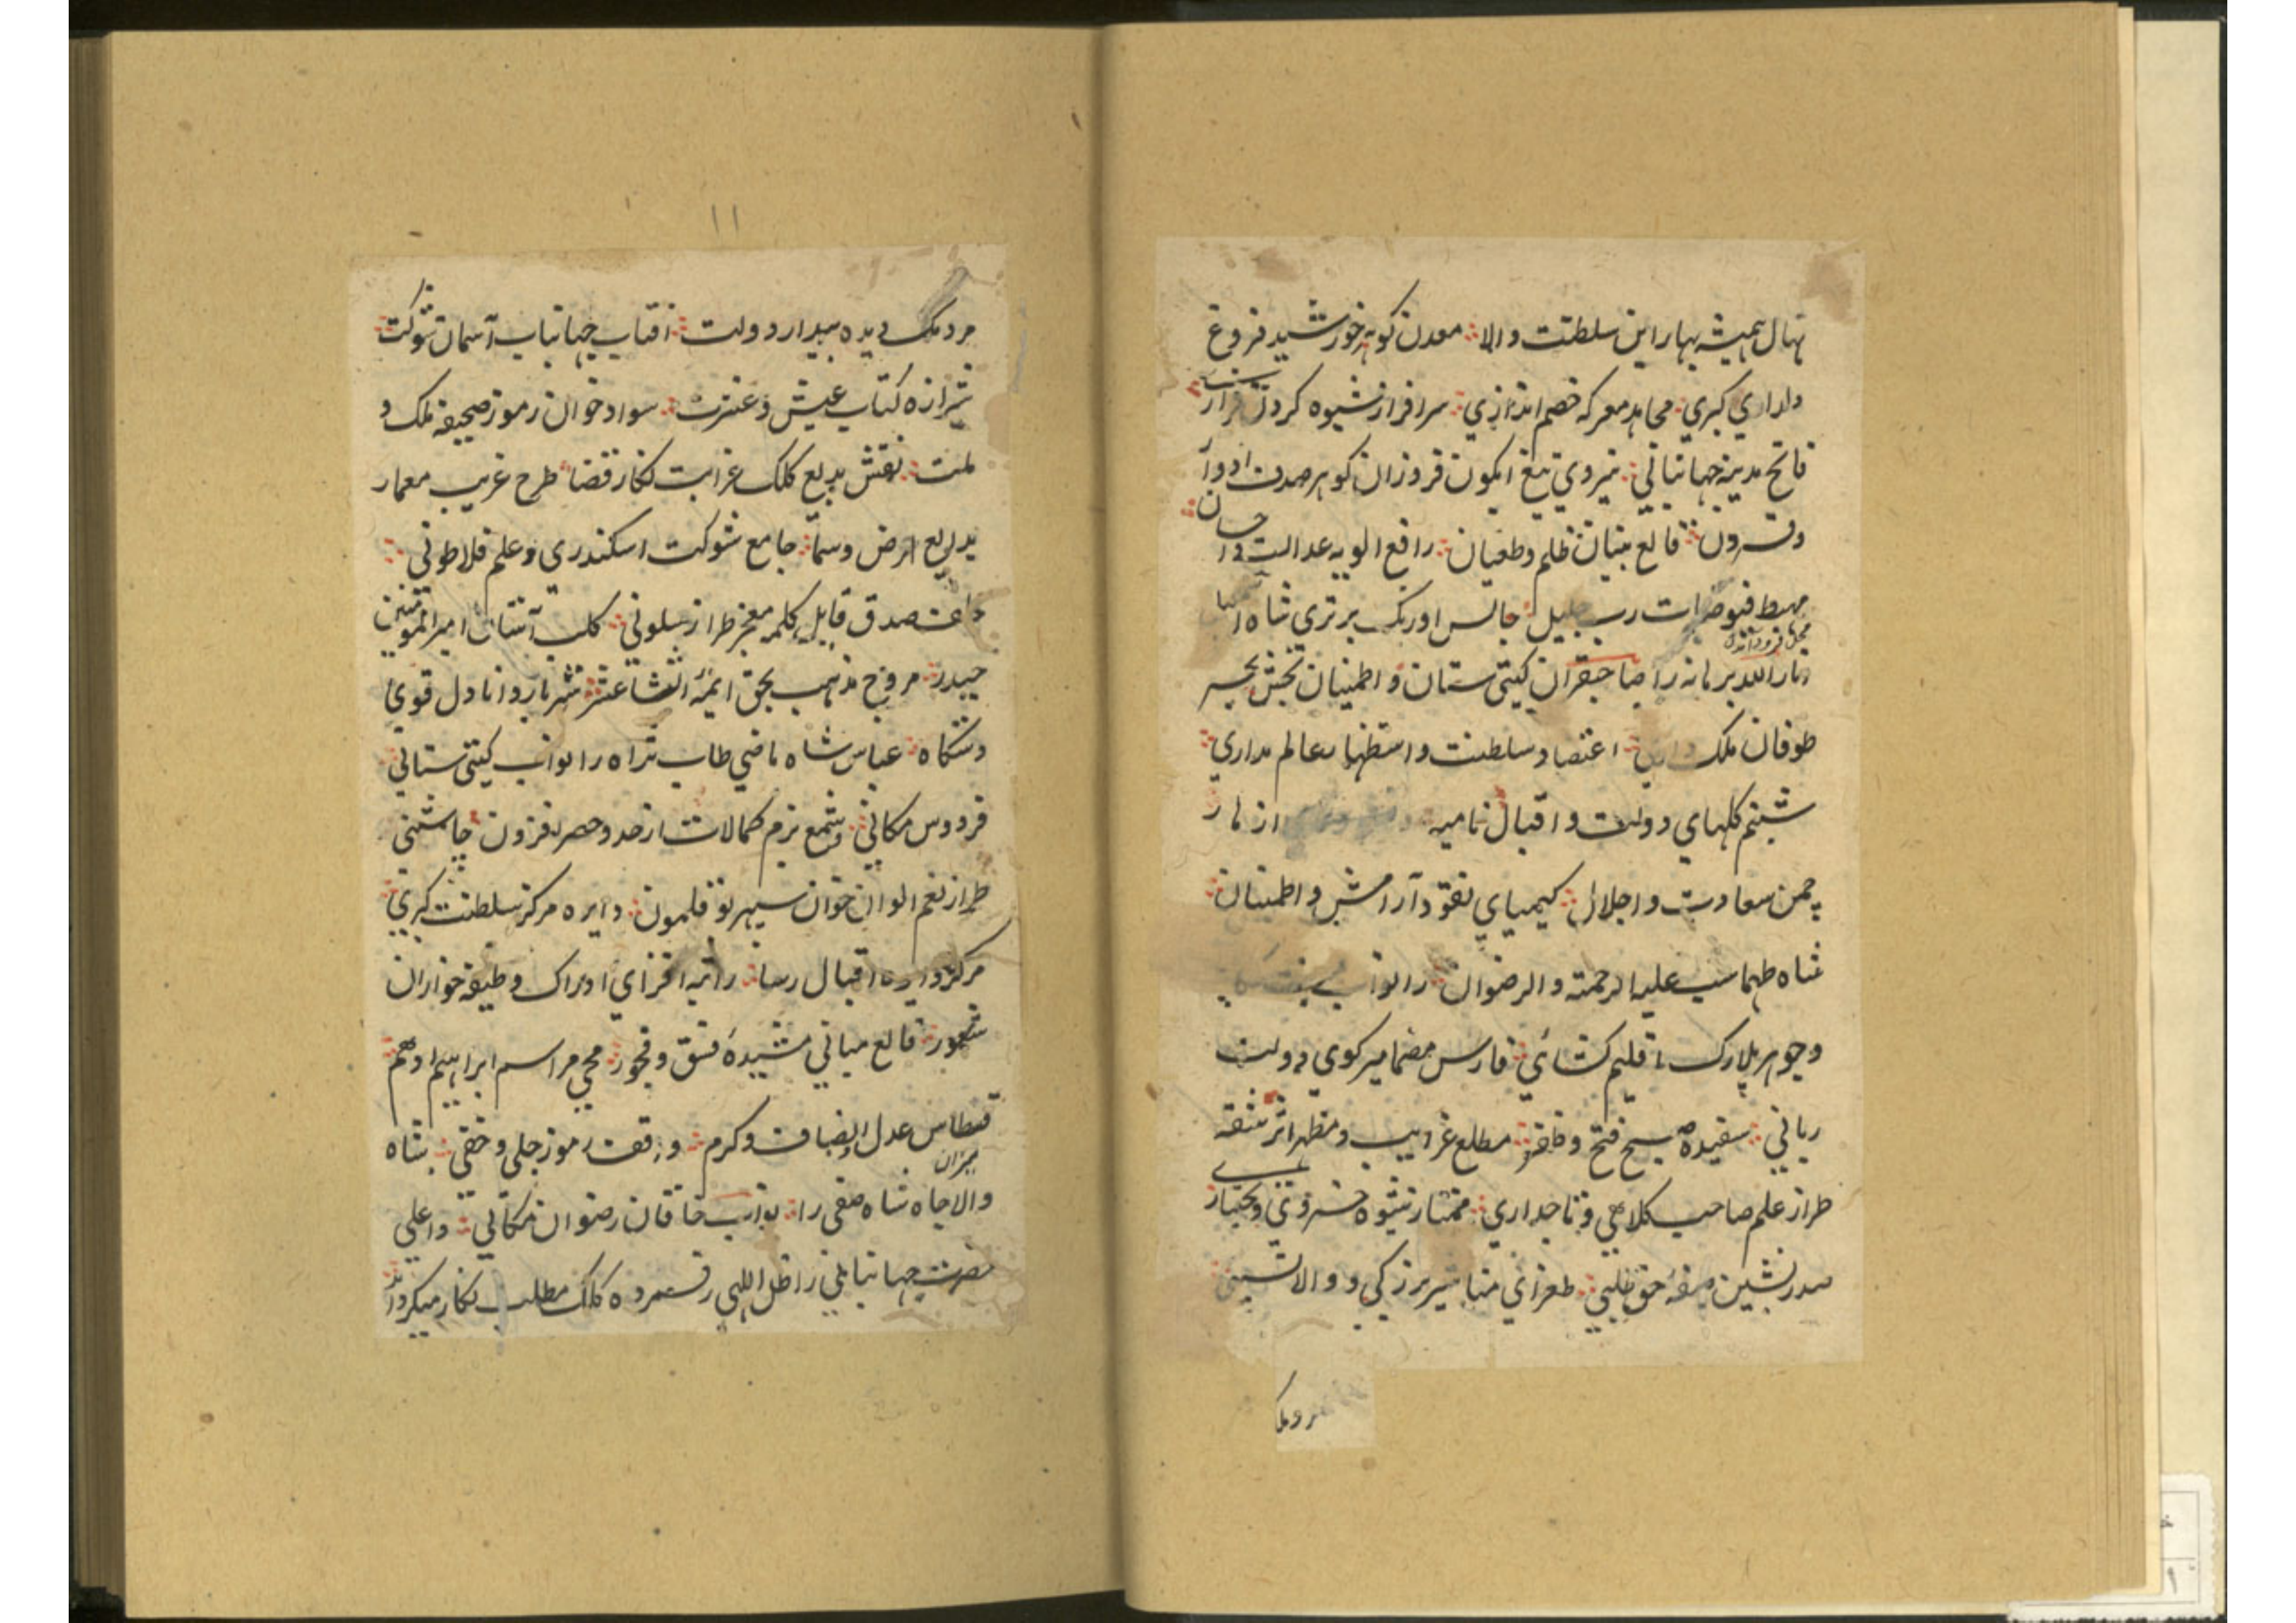 نهال همیشه بهار این سلطنت والا معدن کوهر خورشید فروغ
دارای کبری مجاهد معرکه خصم اندازی سرافراز شیوه کردن فرازی
فاتح مدینه جهانبانی نیروی تیغ ابکون فروزان کوهر صدف ادوار
وقرون قالع بنیان ظلم وطغیان رافع الویه عدالت و احسان
مهبط فیوضات رب جلیل جالس اورنک برتری شاه اسمعیل
محل فرود آمدن
انار الله برهانه را صاحبقران کیتی ستان و اطمینان بخش بحر
طوفان ملک اعتضاد سلطنت و استظهار عالم مداری
شبنم کلهای دولت و اقبال نامیه ازهار
چمن سعادت و اجلال کیمیای نقود آرامش و اطمینان
شاه طهماسب علیه الرحمته و الرضوان را نواب
وجوهر بلارک اقلیم کشائی فارس مضمار کوی دولت
ربانی سفیده صبح فتح وظفر مطلع غرایب و مظهر اثر شقه
طراز علم صاحب کلاهی و تاجداری ممتاز شیوه خسروی و بختیاری
صدرنشین صفه حق طلبی طغرای مناشیر بزرکی و والا نسبی
مردمک
۱۱
مردمک دیده بیدار دولت افتاب جهانتاب آسمان شوکت
شیرازه کتاب عیش و عشرت سواد خوان رموز صحیفه ملک و
ملت نقش بدیع کلک غرابت نکار قضا طرح غریب معمار
بدایع ارض وسما جامع شوکت اسکندری وعلم فلاطونی
صدق قایل کلمه معجز طراز سلونی کلب آستان امیر المومنین
حیدر مروج مذهب بحق ایمه اثنا عشر شهریار دانا دل قوی
دستکاه عباس شاه ماضی طاب ثراه را نواب کیتی ستانی
فردوس مکانی وشمع بزم کمالات از حد وحصر افزون چاشنی
طراز نعم الوان خوان سپهر بوقلمون دایره مرکز سلطنت کبری
مرکز دایره اقبال رسا راتبه افزای ادراک وظیفه خواران
شعور قالع مبانی مشیده فسق وفجور محی مراسم ابراهیم ادهم
قسطاس عدل وانصاف وکرم واقف رموز جلی وخفی شاه
میزان
والاجاه شاه صفی را نواب خاقان رضوان مکانی واعلی
حضرت جهانبانی را ظل اللهی رقمزده کلک مطلب نکار میکرداند